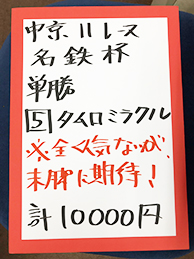 中京11レース
名鉄杯
単勝
5 タイロミラクル
※全く人気ないが、
末脚に期待!
計10000円